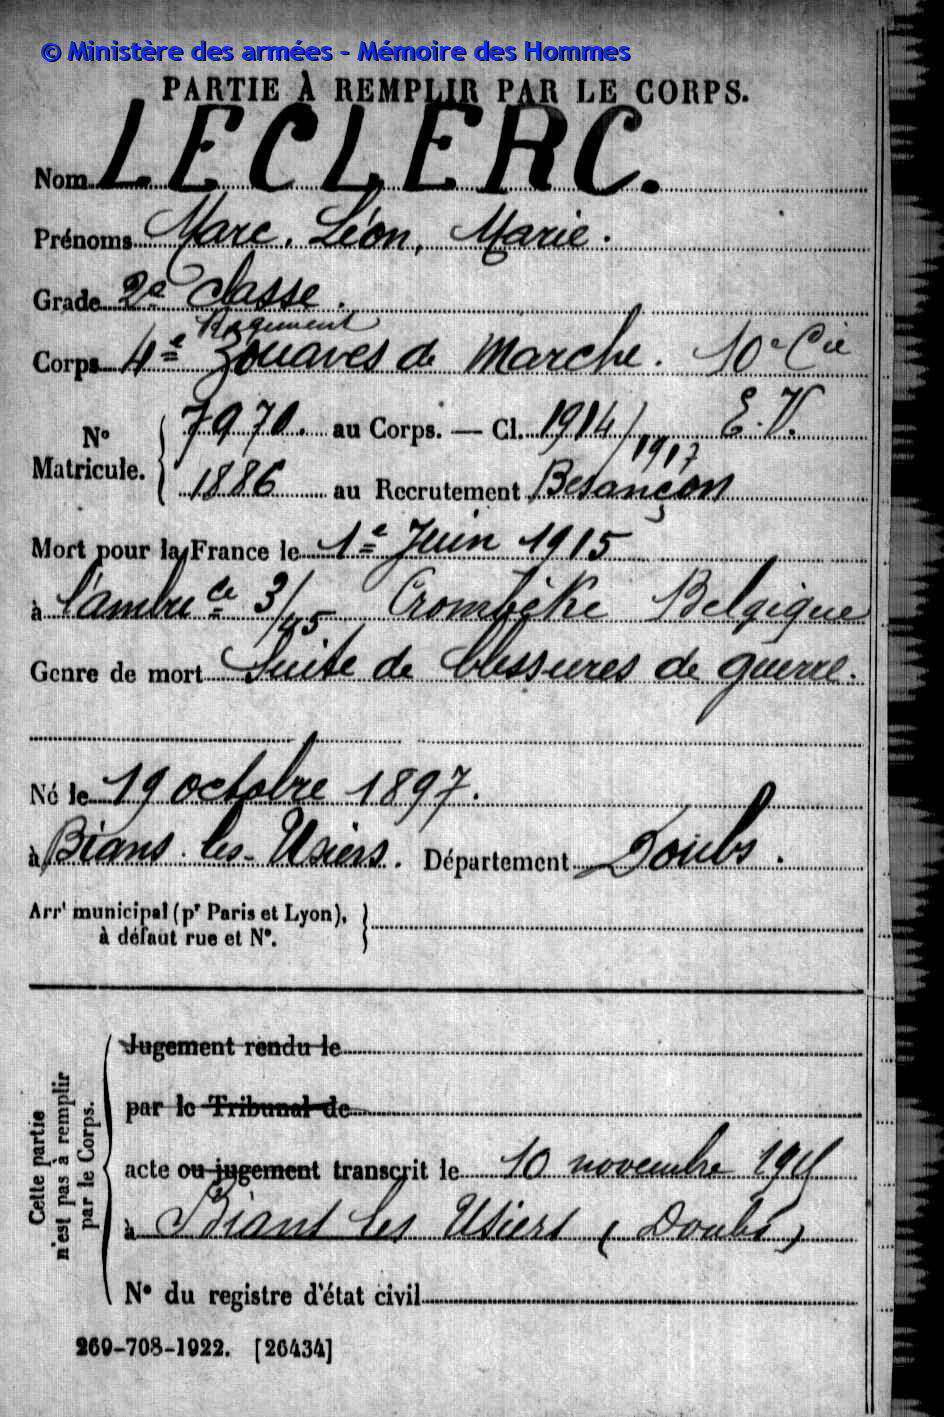 © Ministère des armées - Mémoire des Hommes
PARTIE À REMPLIR PAR LE CORPS.
Nom LECLERC.
Prénoms Marc, Léon, Marie.
Grade 2e classe.
Régiment
Corps 4e Zouaves de Marche. 10e Cie
N° Matricule. { 7970. au Corps. — Cl. 1914/1917 E.V.
1886 au Recrutement Besançon
Mort pour la France le 1e Juin 1915
à l'ambce 3/45 Crombèke Belgique
Genre de mort Suite de blessures de guerre.
Né le 19 octobre 1897.
à Bians-les-Usiers. Département Doubs.
Arrt municipal (pr Paris et Lyon), }
à défaut rue et N°.
Cette partie n'est pas à remplir par le Corps.
Jugement rendu le
par le Tribunal de
acte ou jugement transcrit le 10 novembre 1915
à Bians les Usiers (Doubs)
N° du registre d'état civil
269-708-1922. [26434]